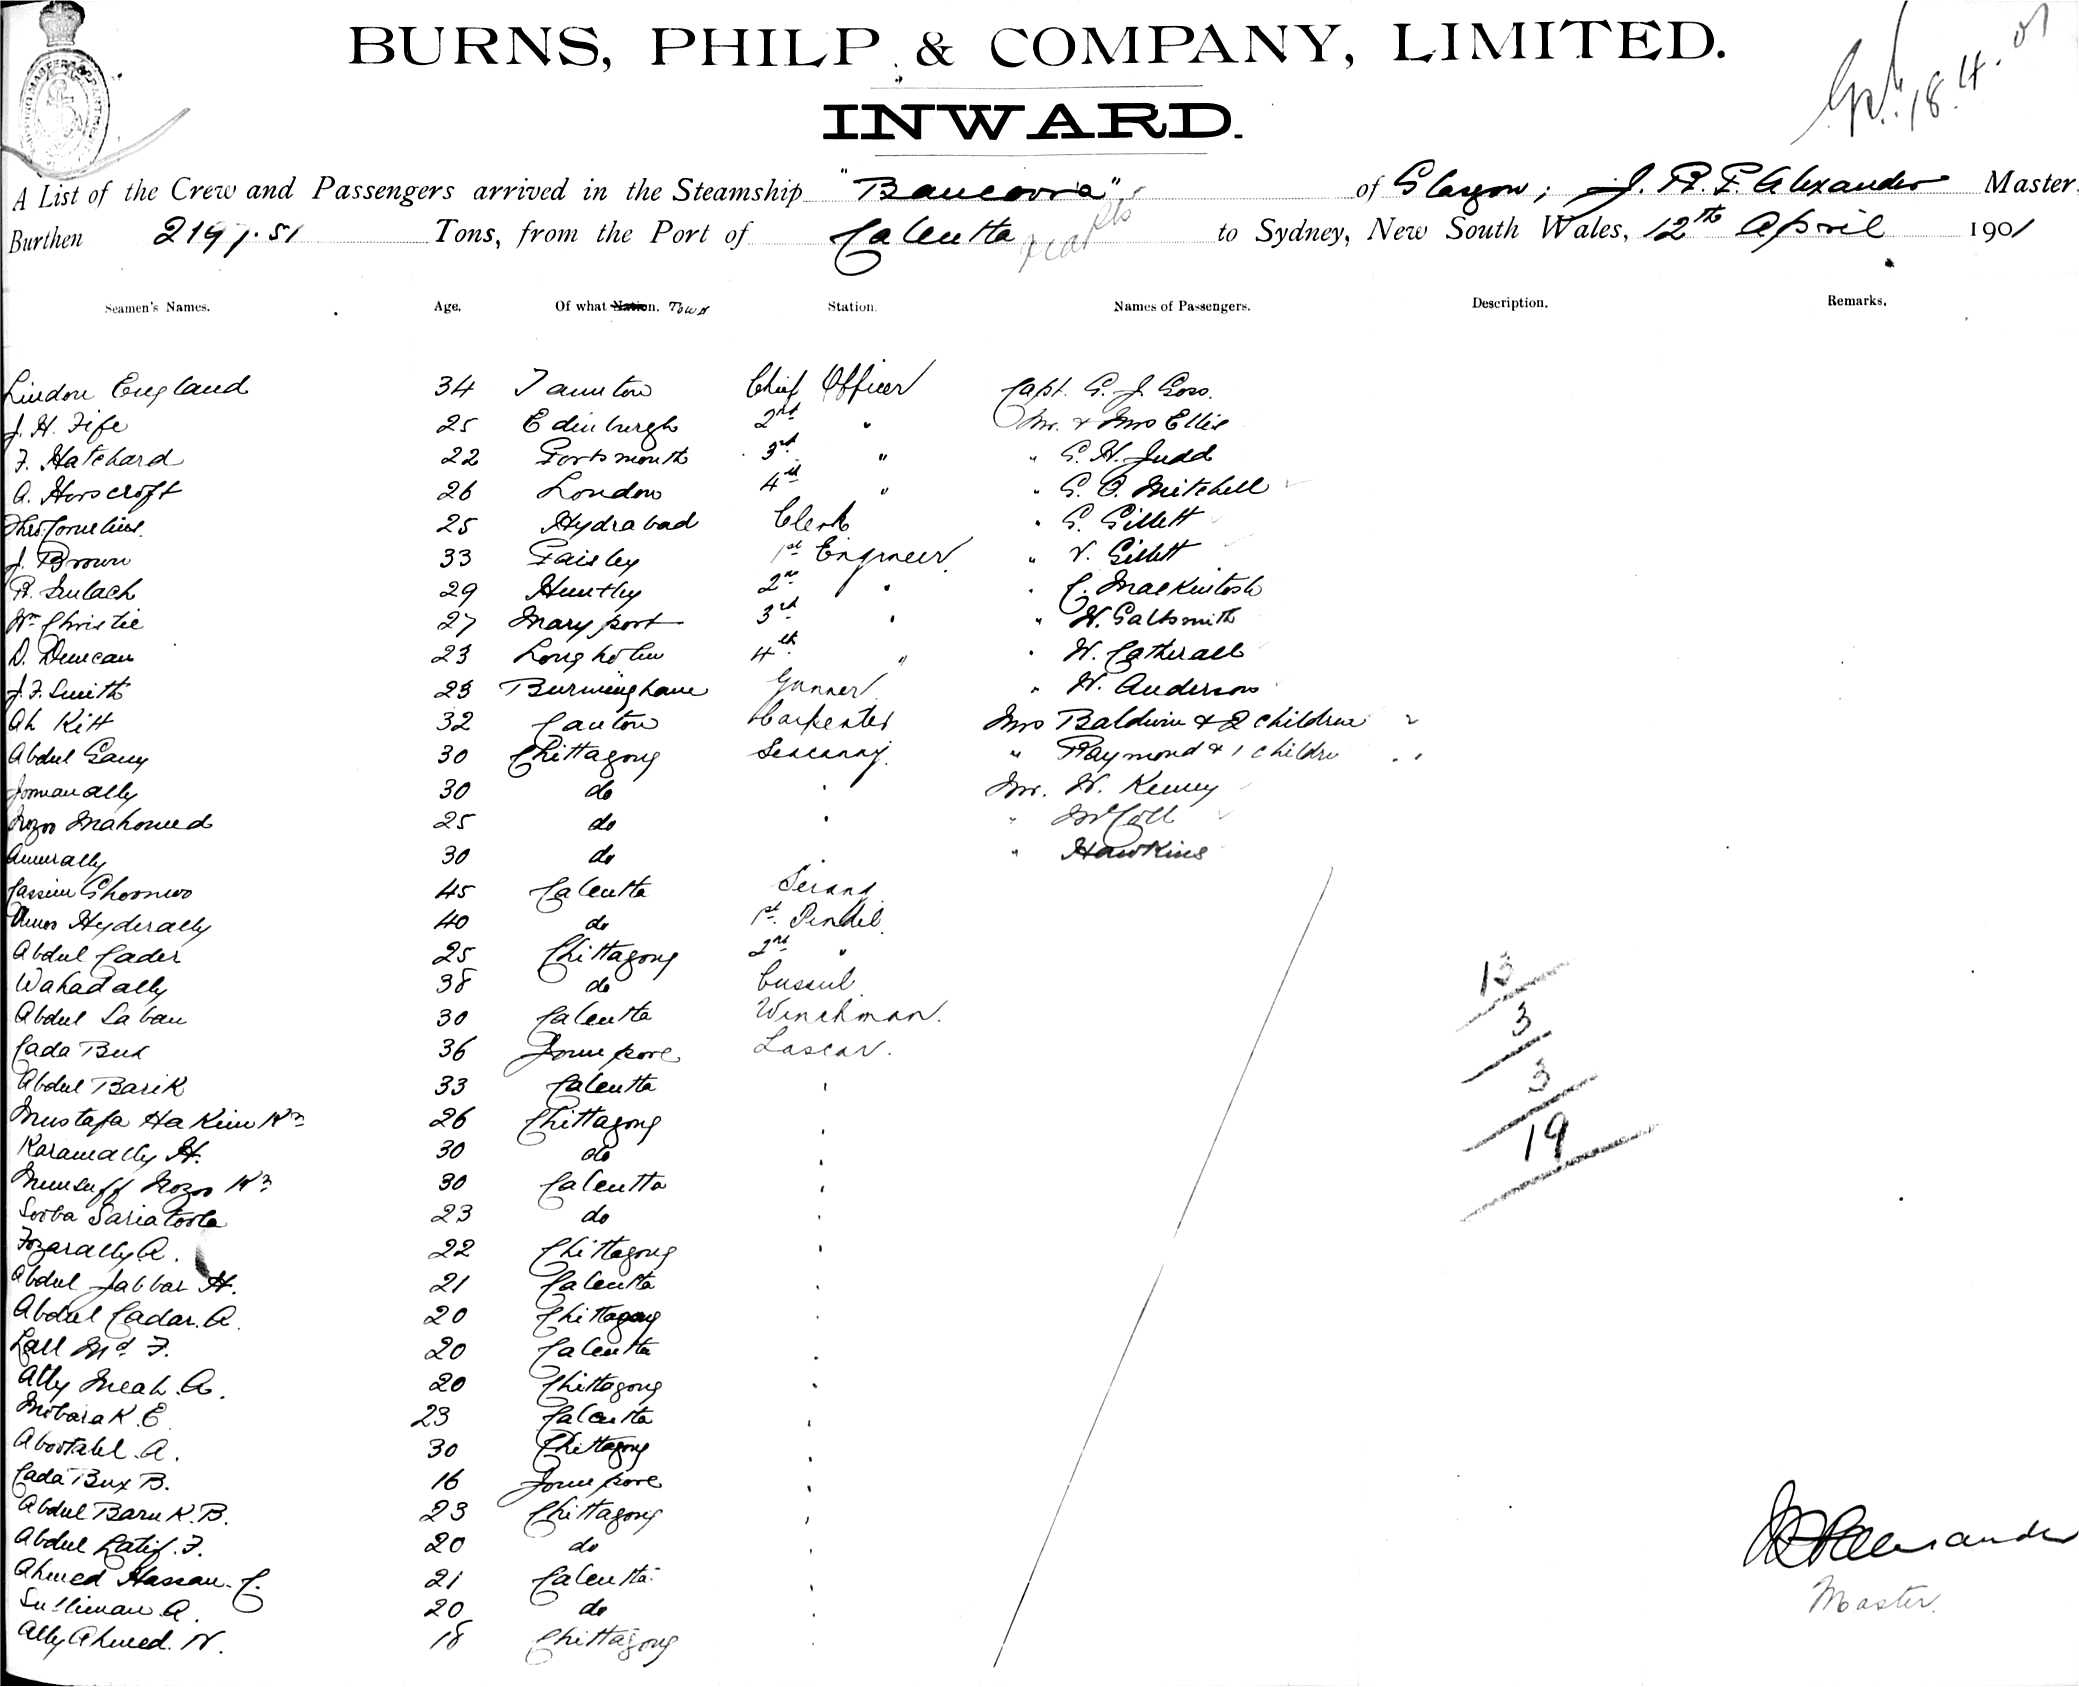 BURNS, PHILP & COMPANY, LIMITED.
INWARD.
18.4.01
A List of the Crew and Passengers arrived in the Steamship "Bancoora" of Glasgow; J. R. F. Alexander Master.
Burthen 2197.51 Tons, from the Port of Calcutta to Sydney, New South Wales, 12th April 1901
Seamen's Names. Age. Of what Nation. Town Station. Names of Passengers. Description. Remarks.
Lindon England 34 Taunton Chief Officer Capt. G. J. Goss.
J. H. Fife 25 Edinburgh 2nd " Mr. & Mrs Ellis
F. Hatchard 22 Portsmouth 3rd " " G. H. Judd
A. Horscroft 26 London 4th " " G. O. Mitchell
Theo. Cornelius. 25 Hydrabad Clerk " G. Gillett
J. Brown 33 Paisley 1st Engineer " V. Gillett
R. Imlach 29 Huntly 2nd " " C. Mackintosh
Wm Christie 27 Maryport 3rd " " W. Galtsmith
D. Duncan 23 Longholm 4th " " W. Catherall
J. F. Smith 23 Burmingham Gunner " W. Anderson
Ah Kitt 32 Canton Carpenter Mrs Baldwin & 2 children
Abdul Gany 30 Chittagong Seacunny. " Raymond & 1 childrn
Jomanally 30 do " Mr. W. Kenny
Nozoo Mahomed 25 do " " McColl
Amerally 30 do " " Hawkins
Cassim Ghoomoo 45 Calcutta Serang
Hyderally 40 do 1st Tindel.
Abdul Cader 25 Chittagong 2nd "
Wahadally 38 do Cussub
Abdul Saban 30 Calcutta Winchman.
Cada Bux 36 Jounpore Lascar.
Abdul Barik 33 Calcutta "
Mustafa Hakim Kn 26 Chittagong "
Karamally H. 30 do "
Munsuff Nozoo Kn 30 Calcutta "
Sooba Sariatoola 23 do "
Fozarally A. 22 Chittagong "
Abdul Jabbar H. 21 Calcutta "
Abdul Cadar. A. 20 Chittagong "
Lall Md F. 20 Calcutta "
Ally Meah. A. 20 Chittagong "
Mobarak. E 23 Calcutta "
Abootalel. A. 30 Chittagong "
Cada Bux B. 16 Jounpore "
Abdul Baruk. B. 23 Chittagong "
Abdul Latif. F. 20 do "
Ahmed Hassan. C. 21 Calcutta "
Sulliman A. 20 do "
Ally Ahmed. N. 18 Chittagong "
13
3
3
19
Alexander
Master.